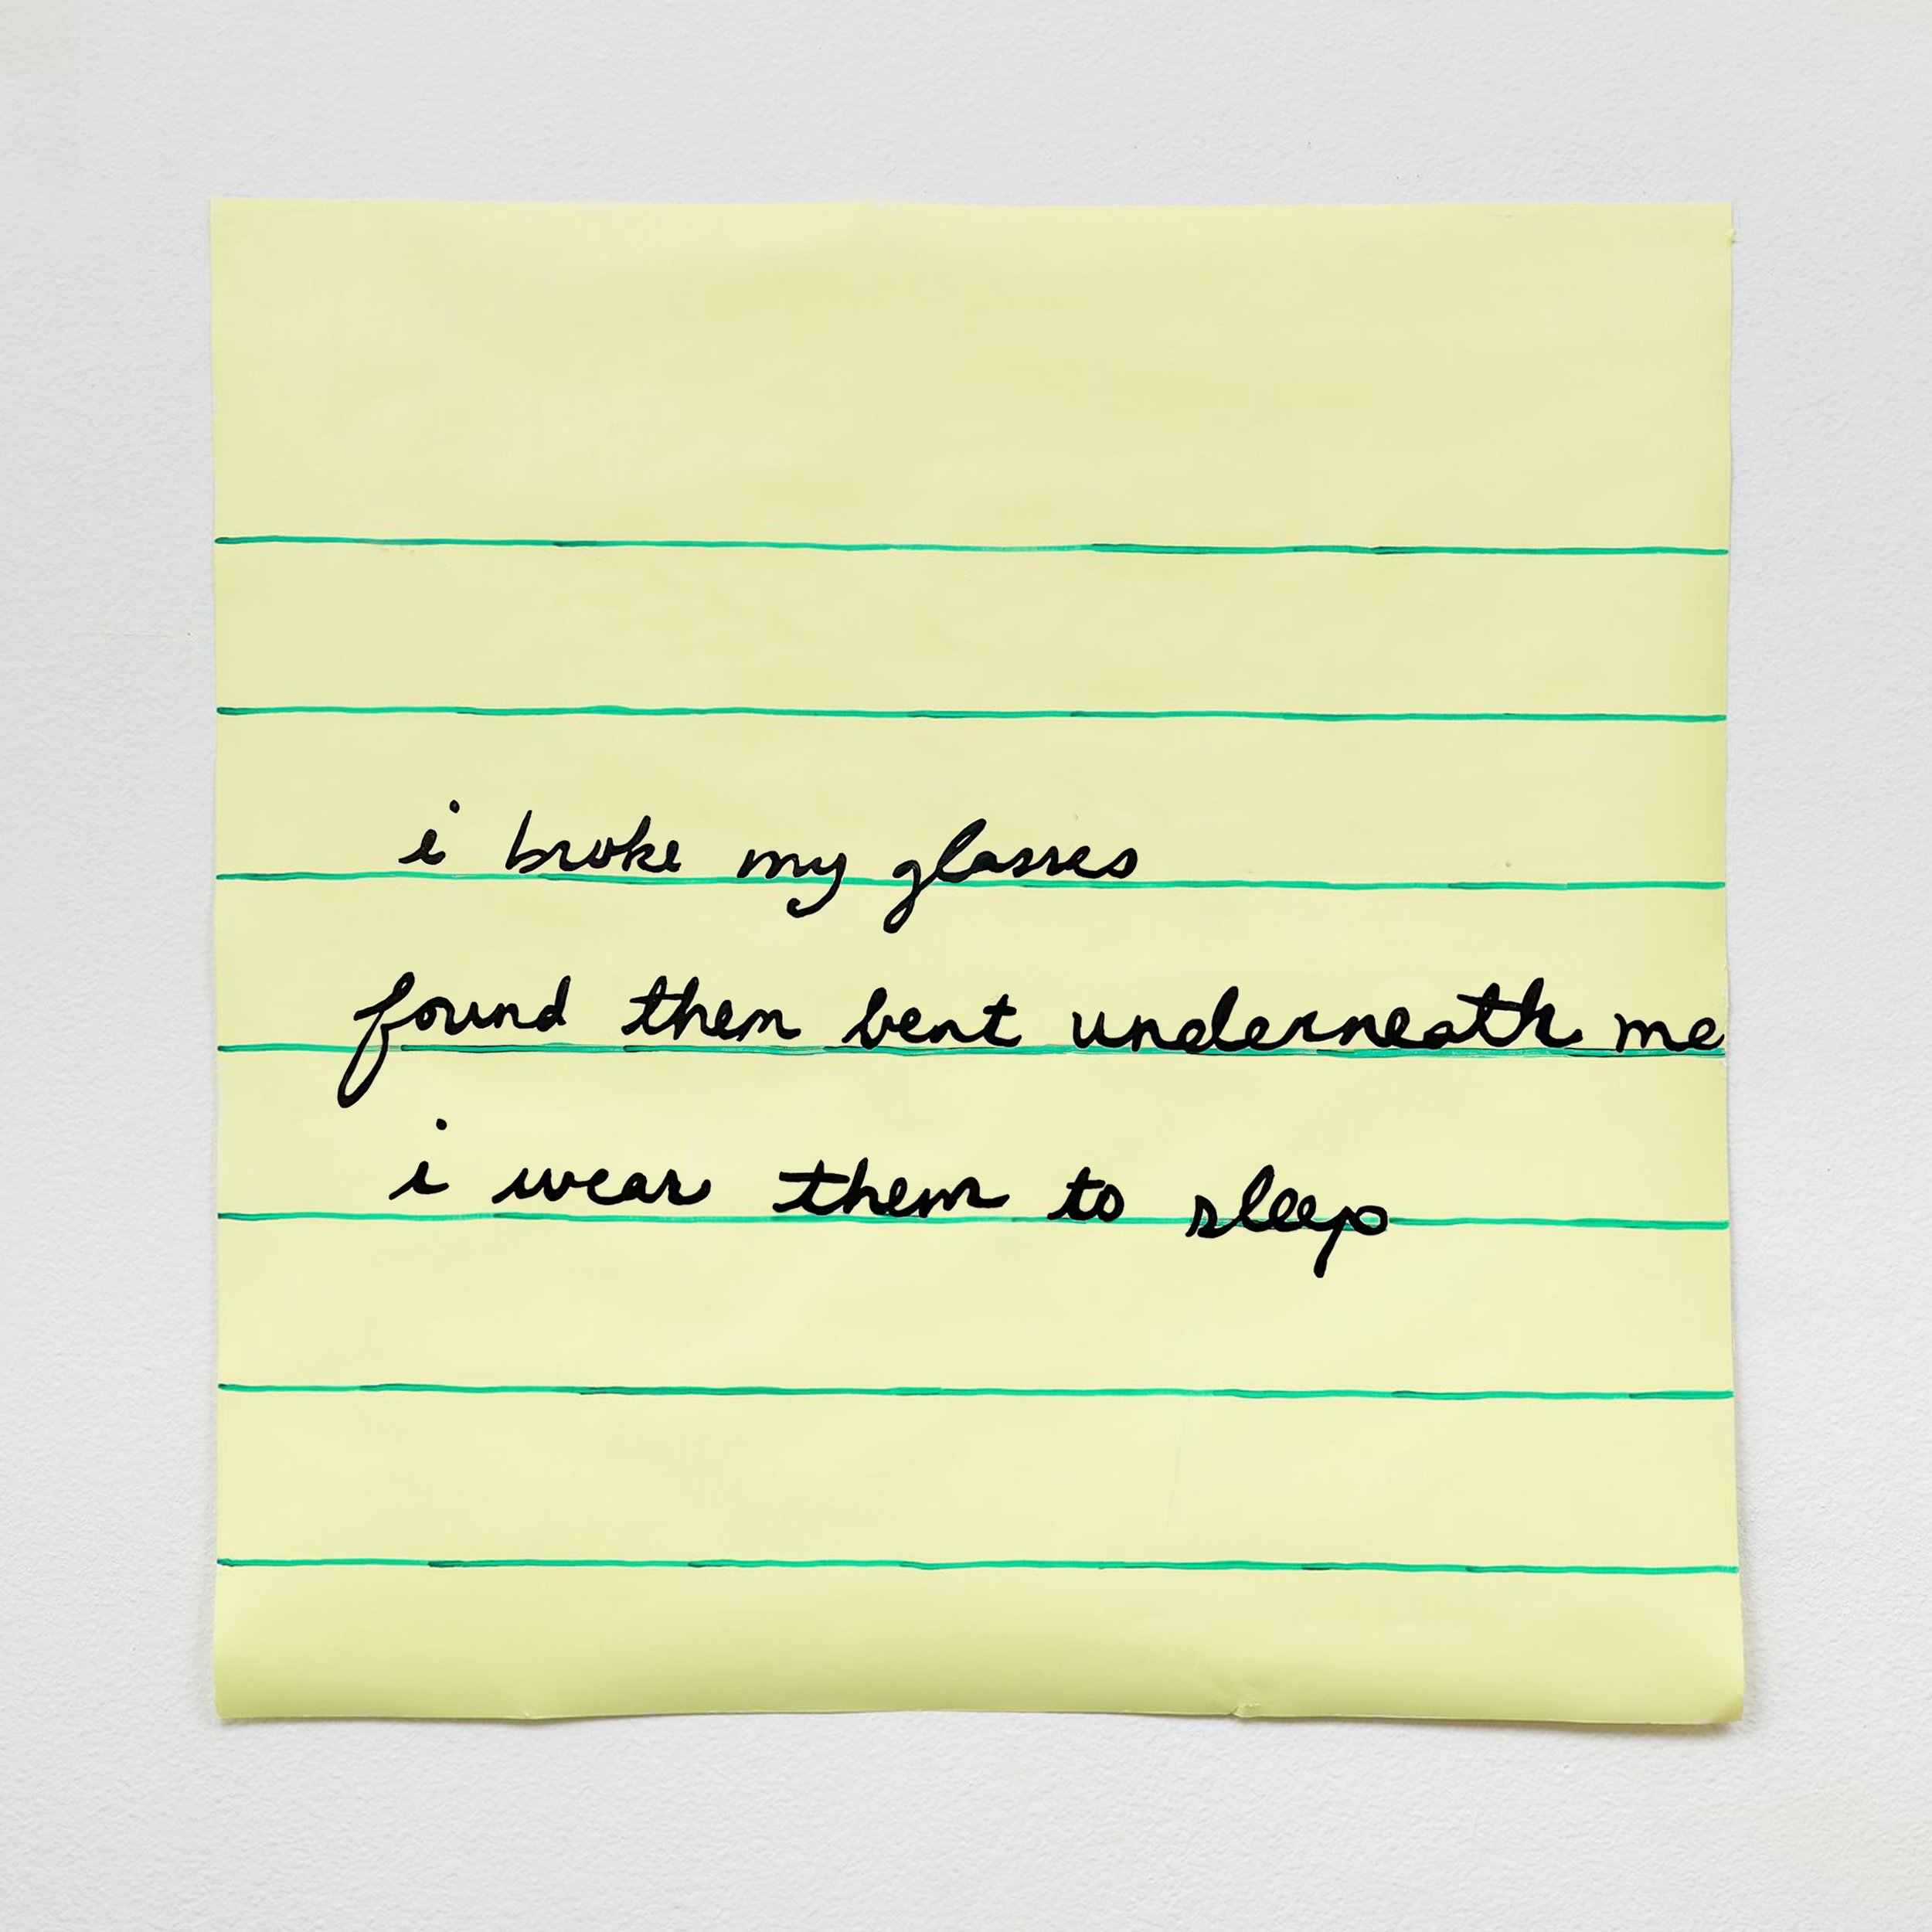 i broke my glasses
found them bent underneath me
i wear them to sleep